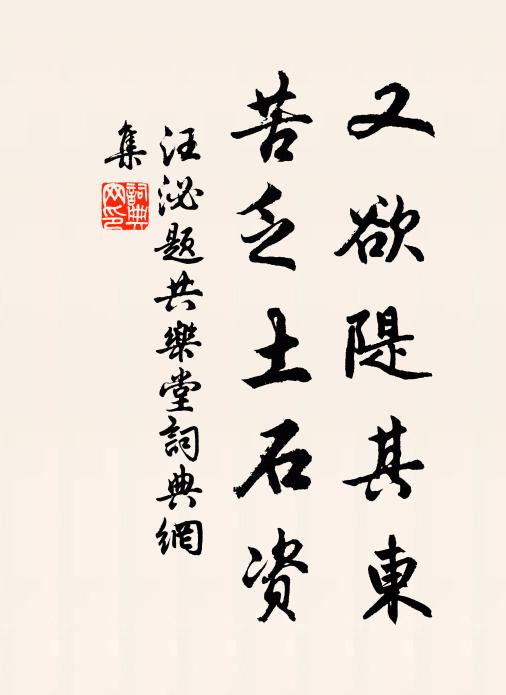 又欲隄其東
苦乏土石資
汪泌題共樂堂詞典網
集
詞典
网印